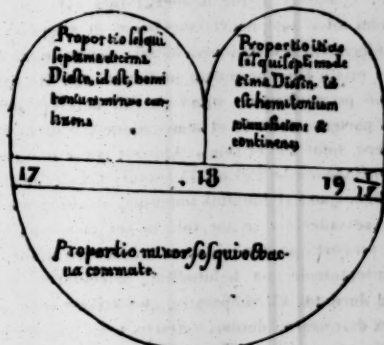 Proportio sesqui
septima decima
Distin, id est, hemi
tonium minus con
tinens
Proportio
sesquiseptimade
cima Distin- id
est hemitonium
&
continens
17
18
19 1/17
Proportio minor sesquiocta-
ua commate.